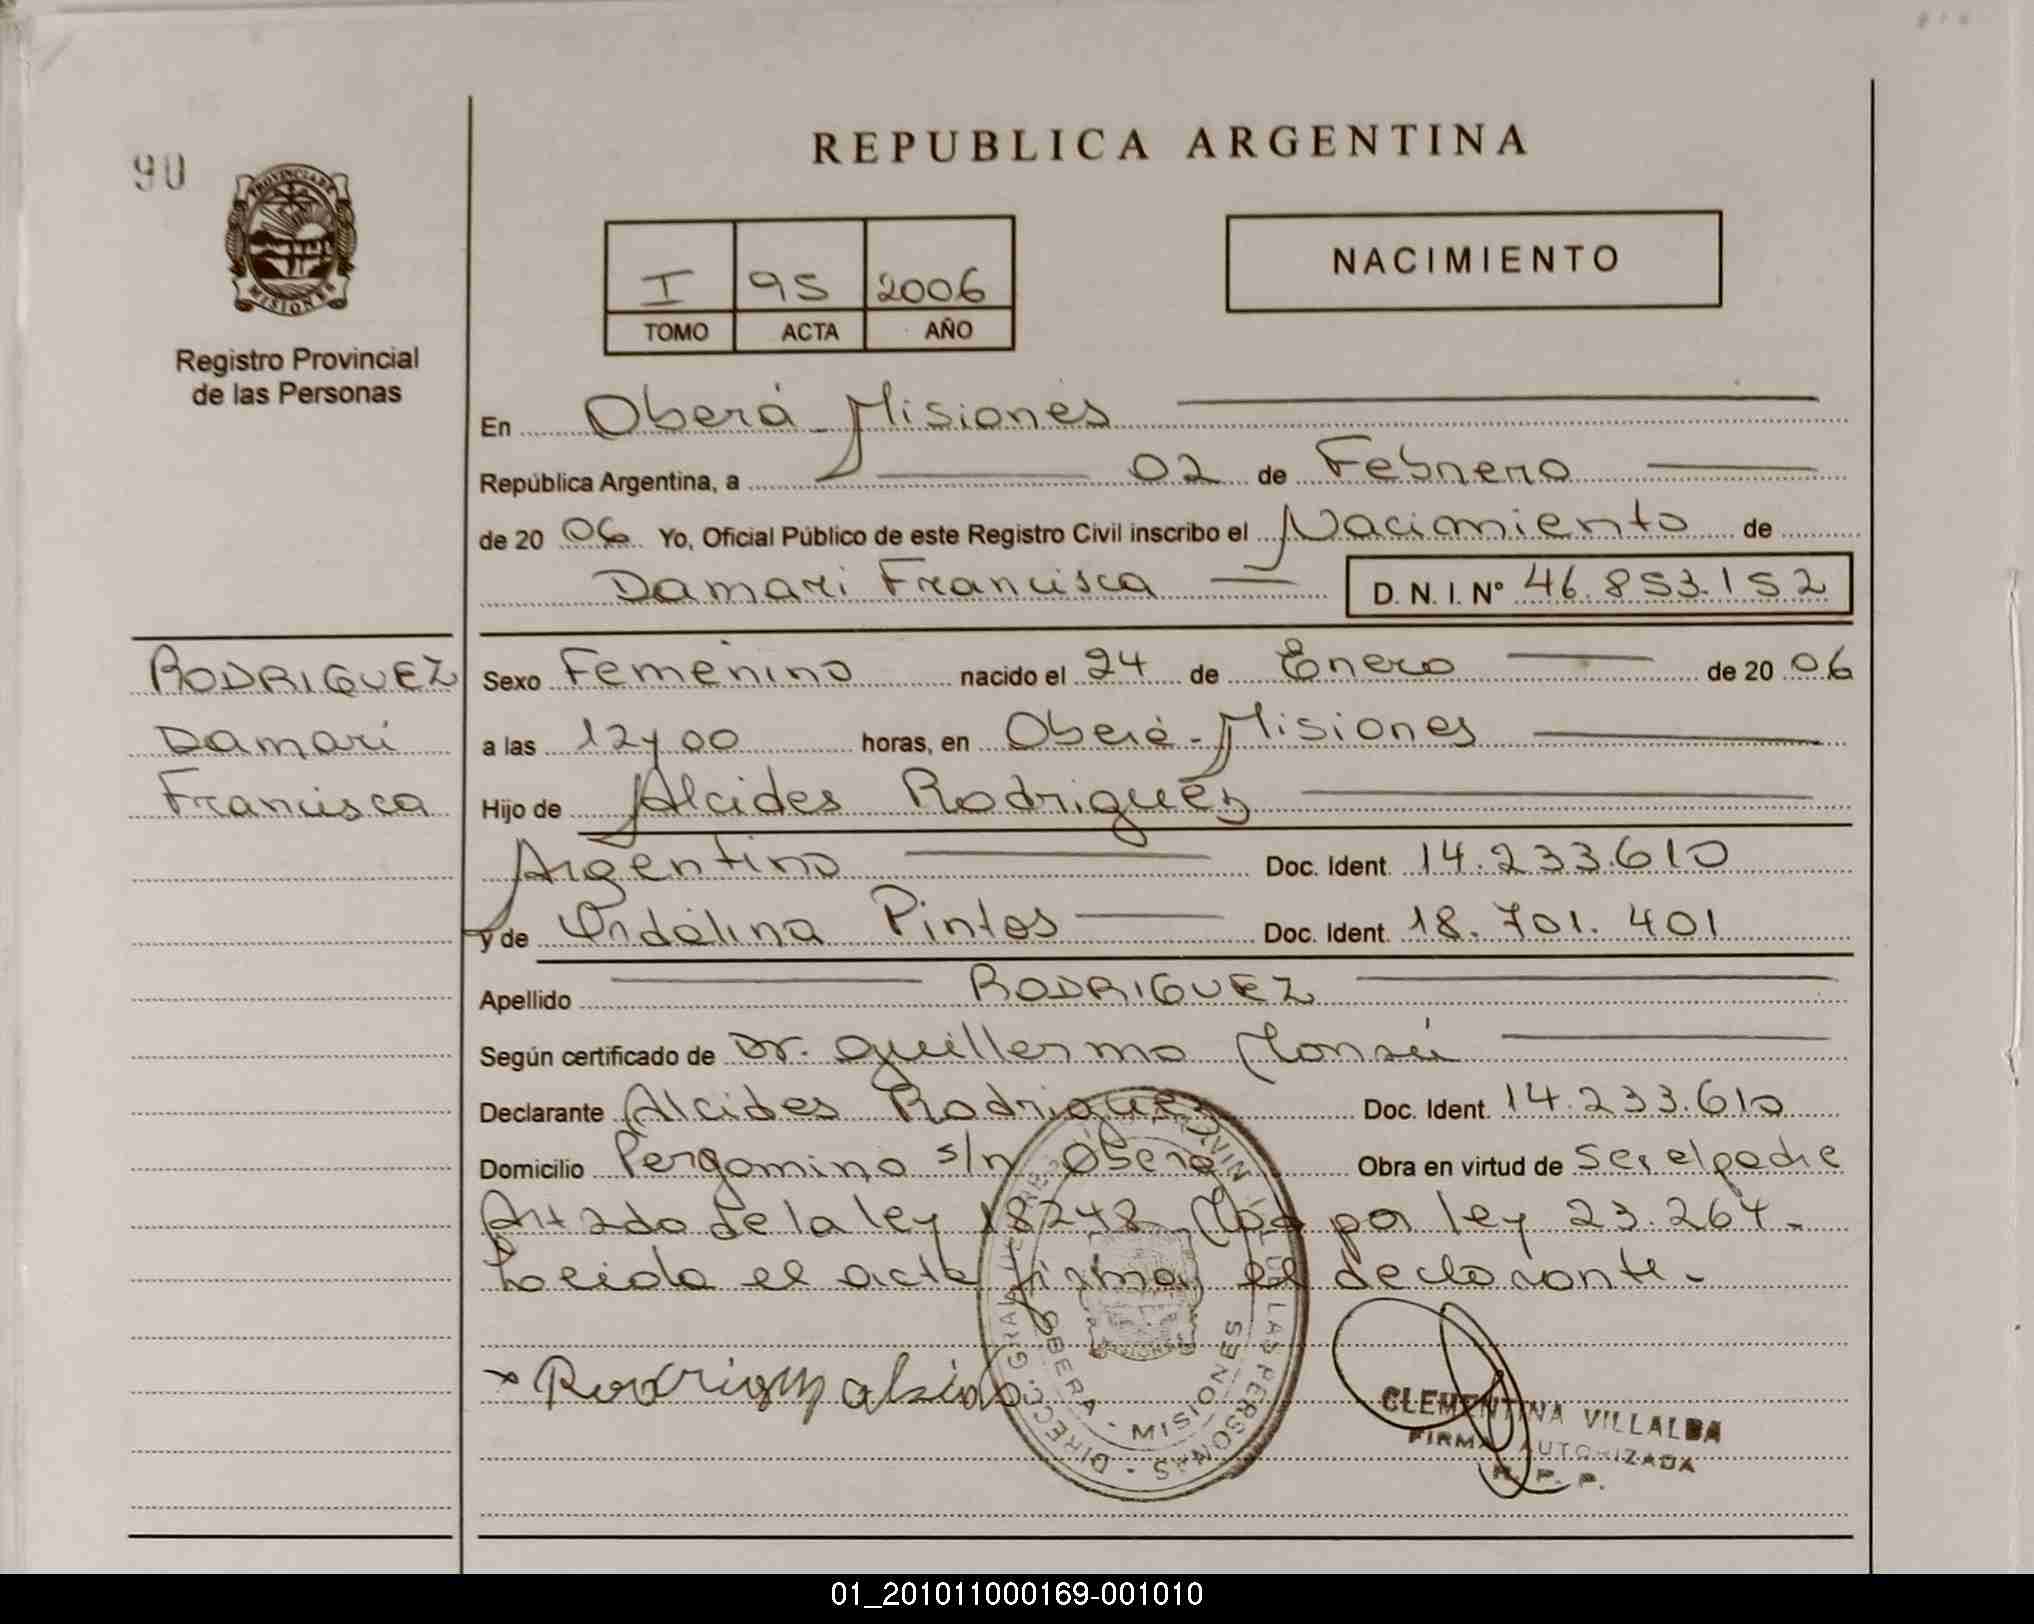 90
PROVINCIA DE
MISIONES
Registro Provincial
de las Personas
REPUBLICA ARGENTINA
I 95 2006
TOMO ACTA AÑO
NACIMIENTO
En Oberá - Misiones
República Argentina, a 02 de Febrero
de 20 06 Yo, Oficial Público de este Registro Civil inscribo el Nacimiento de
Damari Francisca D. N. I. Nº 46.853.152
RODRIGUEZ
Damari
Francisca
Sexo Femenino nacido el 24 de Enero de 20 06
a las 12 y 00 horas, en Oberá - Misiones
Hijo de Alcides Rodriguez
Argentino Doc. Ident. 14.233.610
y de Ordelina Pintos Doc. Ident. 18.701.401
Apellido RODRIGUEZ
Según certificado de Dr. Guillermo
Declarante Alcides Rodriguez Doc. Ident. 14.233.610
Domicilio Pergamino s/n Oberá Obra en virtud de ser el padre
Art 2do de la ley 18248 Mod por ley 23.264.
Leida el acta firma el declarante.
x Rodriguez alcides
DIRECC. GRAL. LAS PERSONAS
OBERA - MISIONES
CLEMENTINA VILLALBA
FIRMA AUTORIZADA
R. P. P.
01_201011000169-001010